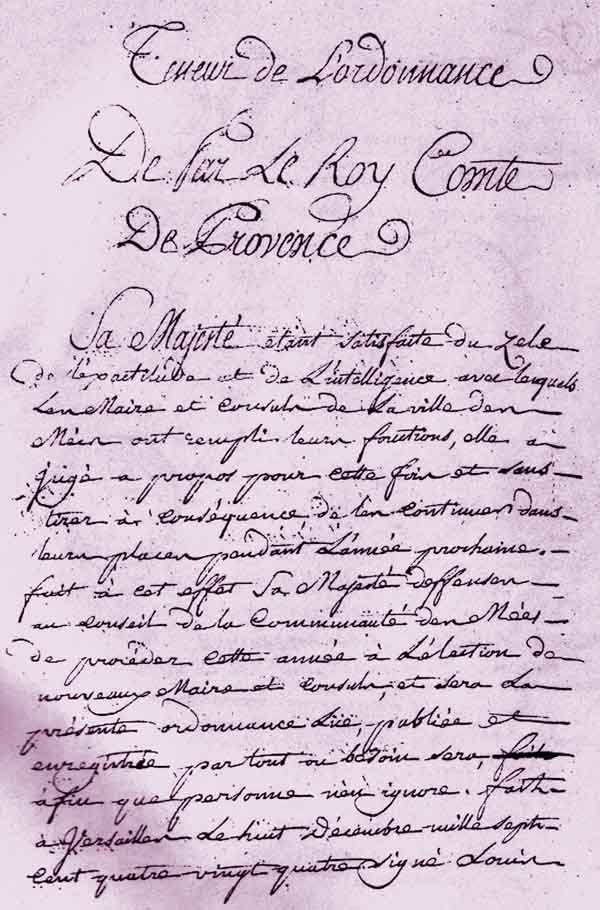 Teneur de L'ordonnance
De Par Le Roy Comte
De Provence
Sa Majesté étant satisfaite du zele
de l'éxactitude et de L'intelligence avec lesquels
Les Maire et Consuls de La ville des
Mées ont rempli leurs fonctions, elle à
jugé a propos pour cette fois et sans
tirer à conséquence de les continuer dans
leurs places pendant L'année prochaine.
fait à cet effet Sa Majesté deffenses
au Conseil de la Communauté des Mées
de procéder cette année à L'élection de
nouveaux Maire et Consuls, et sera La
présente ordonnance Lüe, publiée et
enregistrée par tout ou besoin sera,
afin que personne n'en ignore. faith
à Versailles Le huit décembre mille sept
cent quatre vingt quatre signé Louis